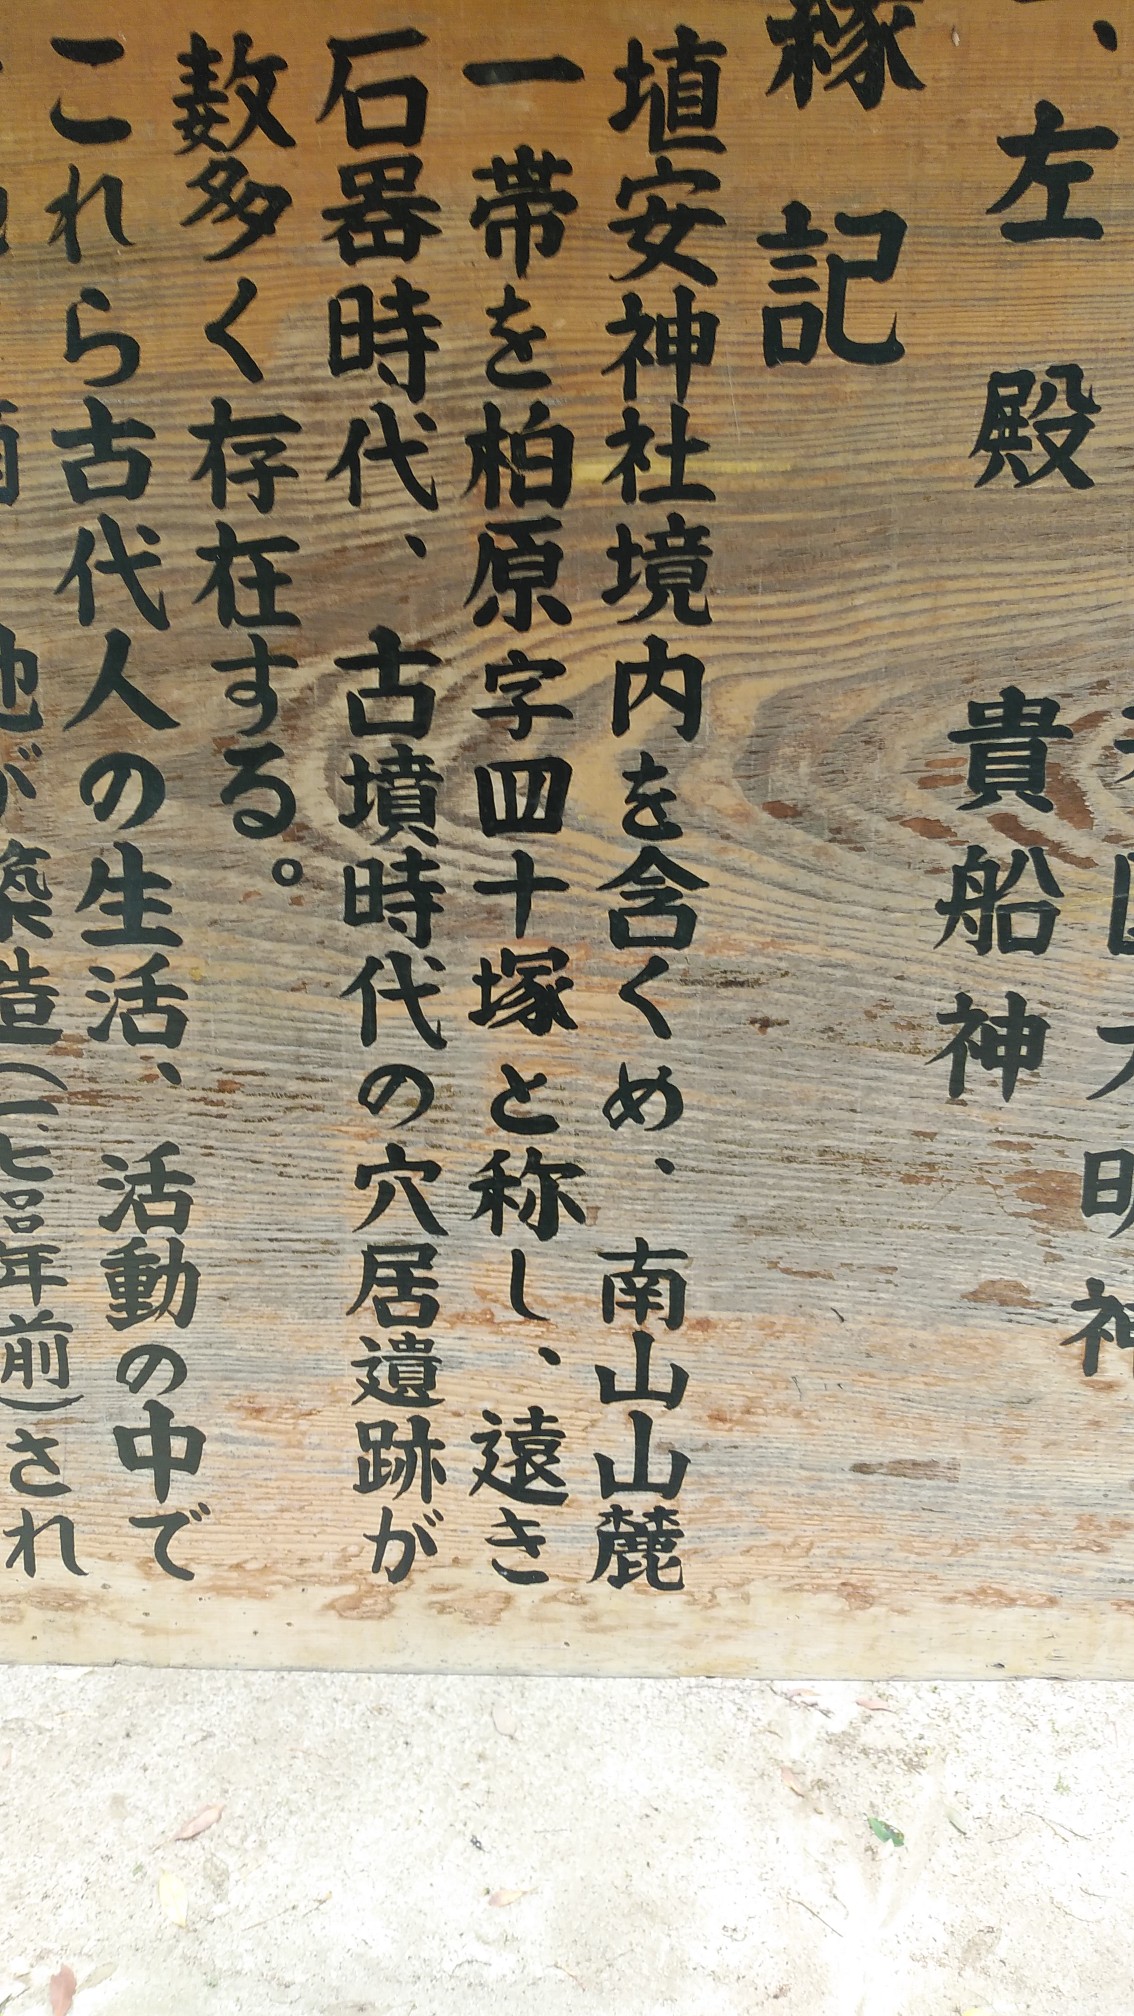 大明神
一、左殿 貴船神
縁記
埴安神社境内を含くめ、南山山麓
一帯を柏原字四十塚と称し、遠き
石器時代、古墳時代の穴居遺跡が
数多く存在する。
これら古代人の生活、活動の中で
池が築造(一七〇〇年前)され